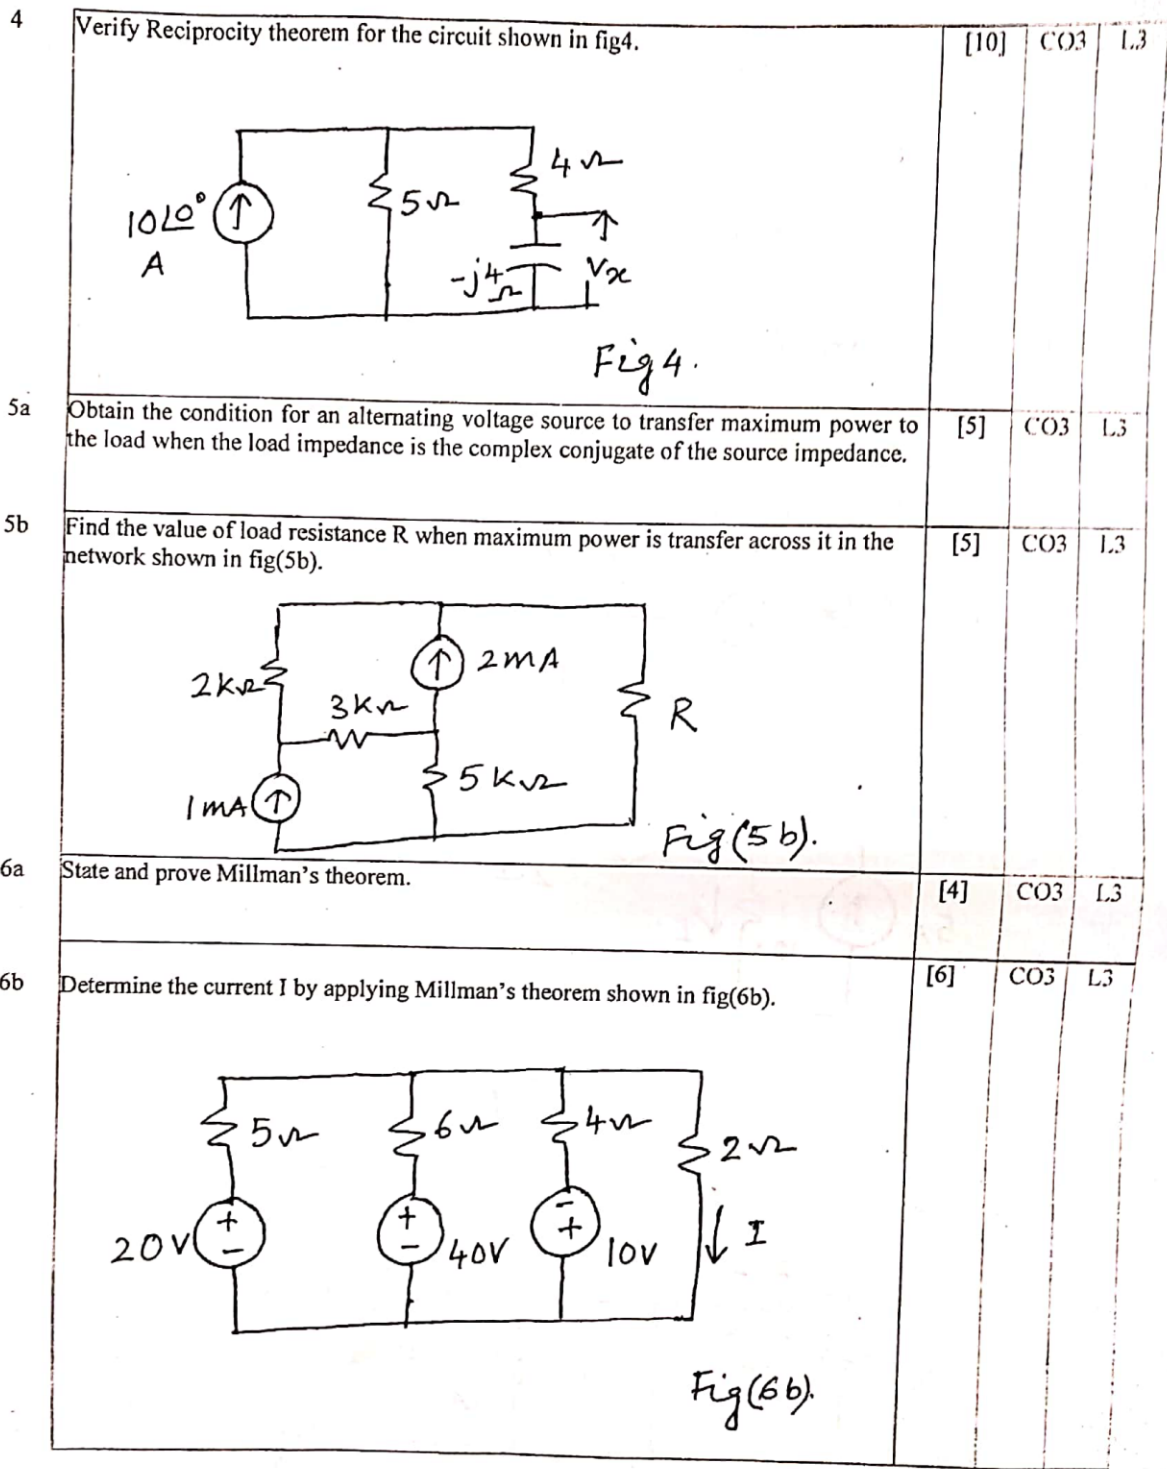 4 Verify Reciprocity theorem for the circuit shown in fig4. [10] CO3 L3
4Ω
10∠0° 5Ω
A
-j4 Vx
Ω
Fig 4.
5a Obtain the condition for an alternating voltage source to transfer maximum power to [5] CO3 L3
the load when the load impedance is the complex conjugate of the source impedance.
5b Find the value of load resistance R when maximum power is transfer across it in the [5] CO3 L3
network shown in fig(5b).
2mA
2KΩ
3KΩ R
5KΩ
1mA
Fig(5b).
6a State and prove Millman's theorem. [4] CO3 L3
6b Determine the current I by applying Millman's theorem shown in fig(6b). [6] CO3 L3
5Ω 6Ω 4Ω
2Ω
+ + -
- - +
20V 40V 10V I
Fig(6b).